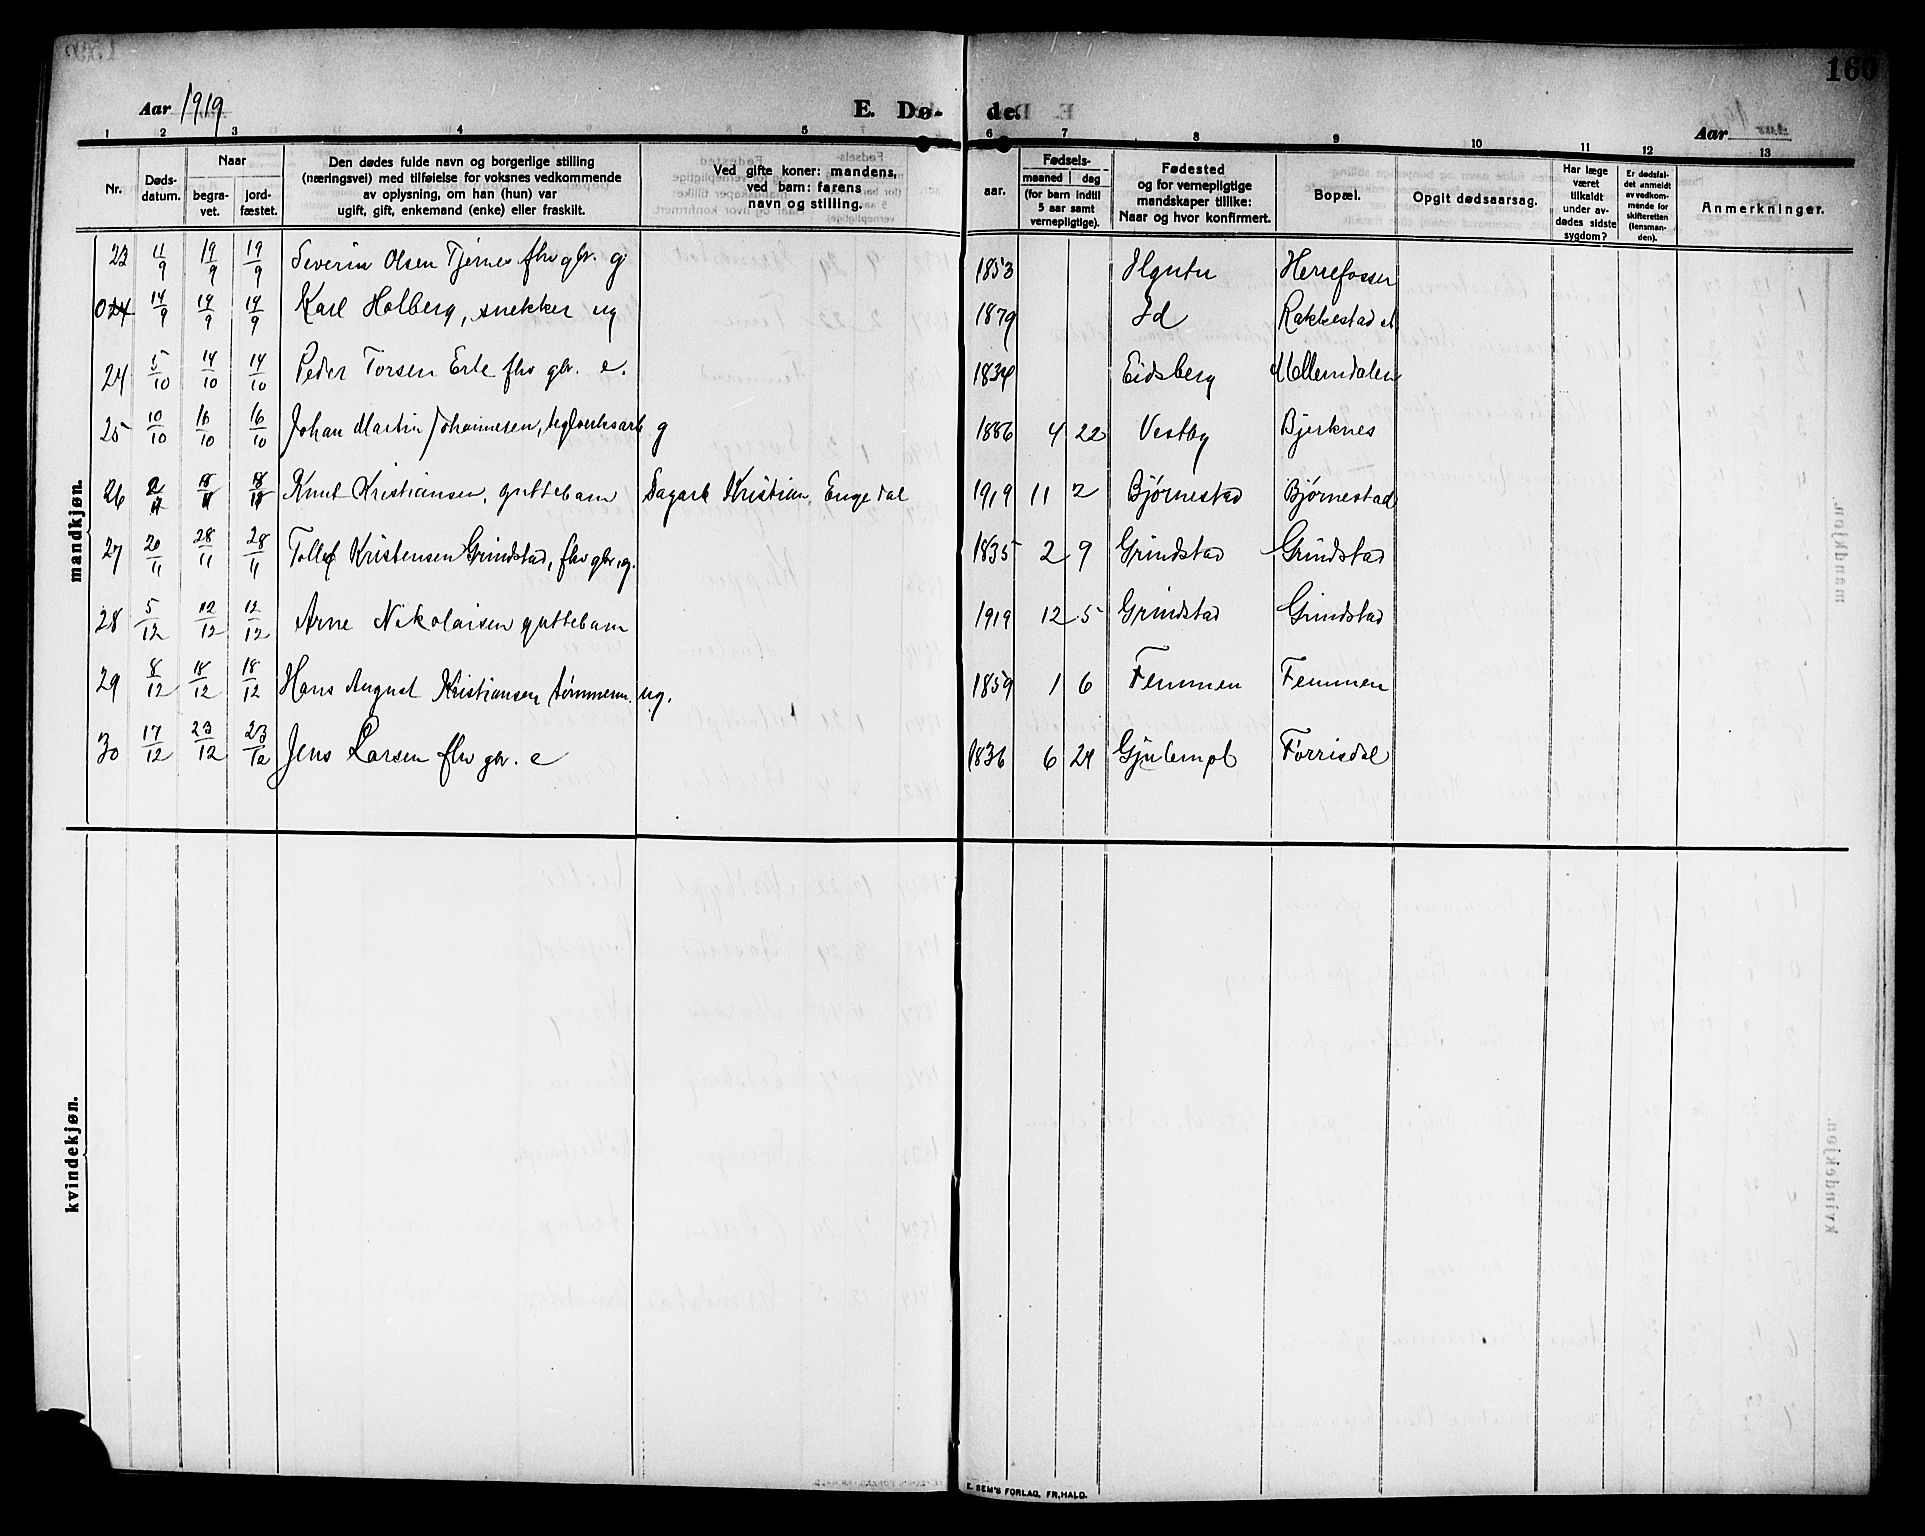 160
Aar 1919 E. Dø- de. Aar
1 2 3 4 5 6 7 8 9 10 11 12 13
Nr. Døds-datum. Naar begra-vet. jord-fæstet. Den dødes fulde navn og borgerlige stilling (næringsvei) med tilføielse for voksnes vedkommende av oplysning, om han (hun) var ugift, gift, enkemand (enke) eller fraskilt. Ved gifte koner: mandens, ved barn: farens navn og stilling. Fødsels- aar. maaned dag (for barn indtil 5 aar samt vernepligtige). Fødested og for vernepligtige mandskaper tillike: Naar og hvor konfirmert. Bopæl. Opgit dødsaarsag. Har læge været tilkaldt under av-dødes sidste sygdom? Er dødsfal-det anmeldt av vedkom-mende for skifteretten (lensman-den). Anmerkninger.
mandkjøn.
23 11/9 19/9 19/9 Severin Olsen Tjernes fhv gbr. g. 1853 Herrefossen
024 14/9 19/9 19/9 Karl Holberg, snekker ug 1879 Id Rakkestad st.
24 5/10 14/10 14/10 Peder Torsen Erte fhv gbr. e. 1834 Eidsberg Møllerndalen
25 10/10 16/10 16/10 Johan Martin Johannesen, teglverksarb g 1886 4 22 Vestby Bjerknes
26 2/11 18/11 18/11 Knut Kristiansen, guttebarn Dagarb Kristian Engedal 1919 11 2 Bjørnestad Bjørnestad
27 20/11 28/11 28/11 Tollef Kristensen Grindstad, fhv gbr, g. 1835 2 9 Grindstad Grindstad
28 5/12 12/12 12/12 Arne Nikolaisen guttebarn 1919 12 5 Grindstad Grindstad
29 8/12 18/12 18/12 Hans August Kristiansen tømmerm. ug. 1859 1 6 Femmen Femmen
30 17/12 23/12 23/12 Jens Larsen fhv gbr. e 1836 6 24 Gjulempl Førrisdal
kvindekjøn.
E. SEM'S FORLAG, FR.HALD.